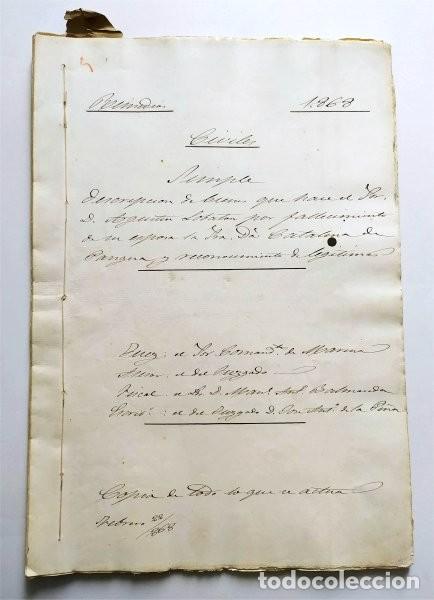 1868
Civiles
Simple
descripcion de bienes que hace el Sor.
D. Agustin Lobaton por fallecimiento
de su esposa la Sra. Da. Catalina de
Pangua y reconocimiento de legitimas
Juez: el Sor. Comandte. de Marina
Asesor: el del Juzgado
Fiscal el Dr. D. Manl. Ant.
Escrib.: el del Juzgado D. Ant. de la Peña
Copia de todo lo que se actua
Febrero 22/868
todocoleccion